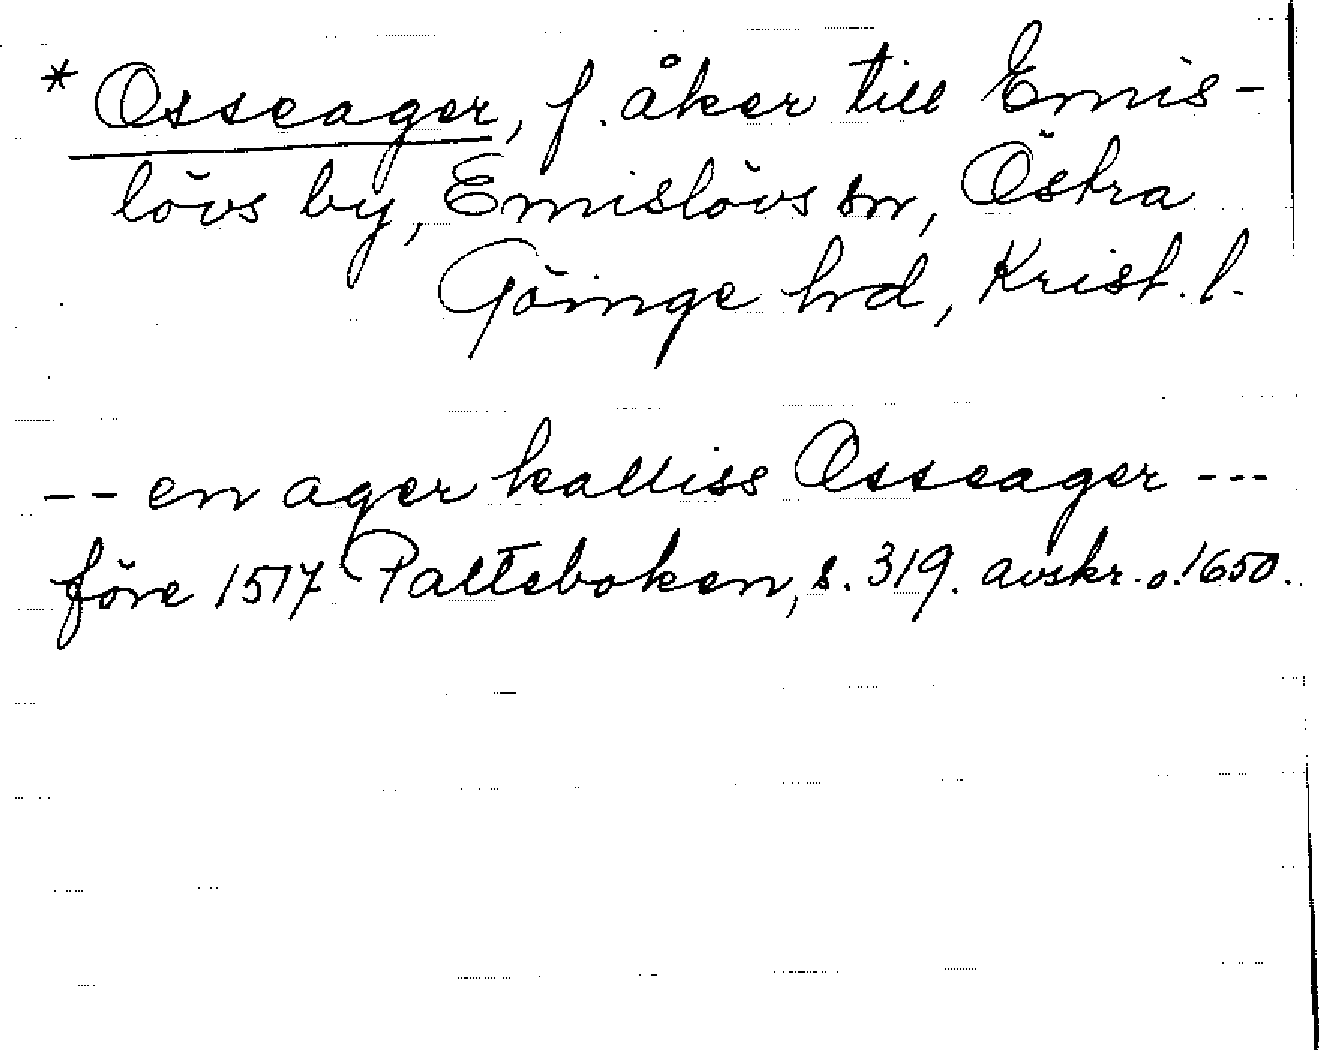 * Osseager, f. åker till Emis-
lövs by, Emislövs sn, Östra
Göinge hd, Krist. l.
-- en ager kalliss Osseager ---
före 1517 Palteboken, s. 319. avskr. o. 1650.